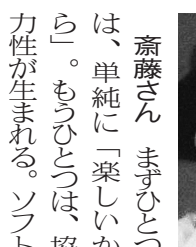 斎藤さん　まずひとつ
は、単純に「楽しいか
ら」。もうひとつは、協
力性が生まれる。ソフト